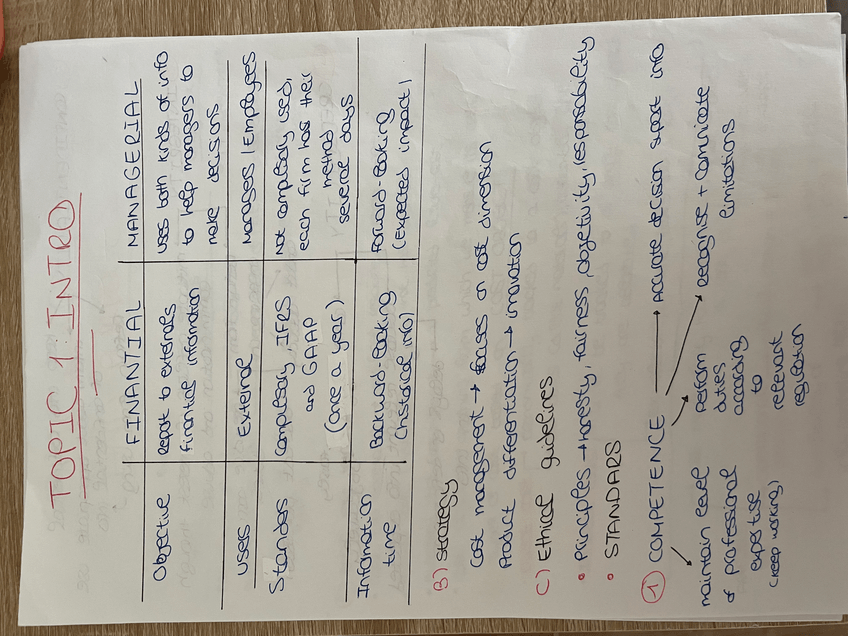 TOPIC 1: INTRO
FINANTIAL MANAGERIAL
Objective
Report to externals
financial information
uses both kinds of info
to help managers to
make decisions
users External Managers / Employees
Standers
Compulsory, IFRS
and GAAP
(once a year)
Not compulsory used,
each firm has their
method
several days
Information
time
Backward-looking
(historical info)
Forward-looking
(Expected impact)
B) Strategy
Cost management → focuses on cost dimension
Product differentiation → innovation
C) Ethical guidelines
• Principles → honesty, fairness, objetivity, responsability
• STANDARS
1 COMPETENCE → Accurate decision support info
maintain level
of professional
expertise
(keep working)
Perform
duties
according
to
relevant
regulation
Recognise + comunicate
limitations